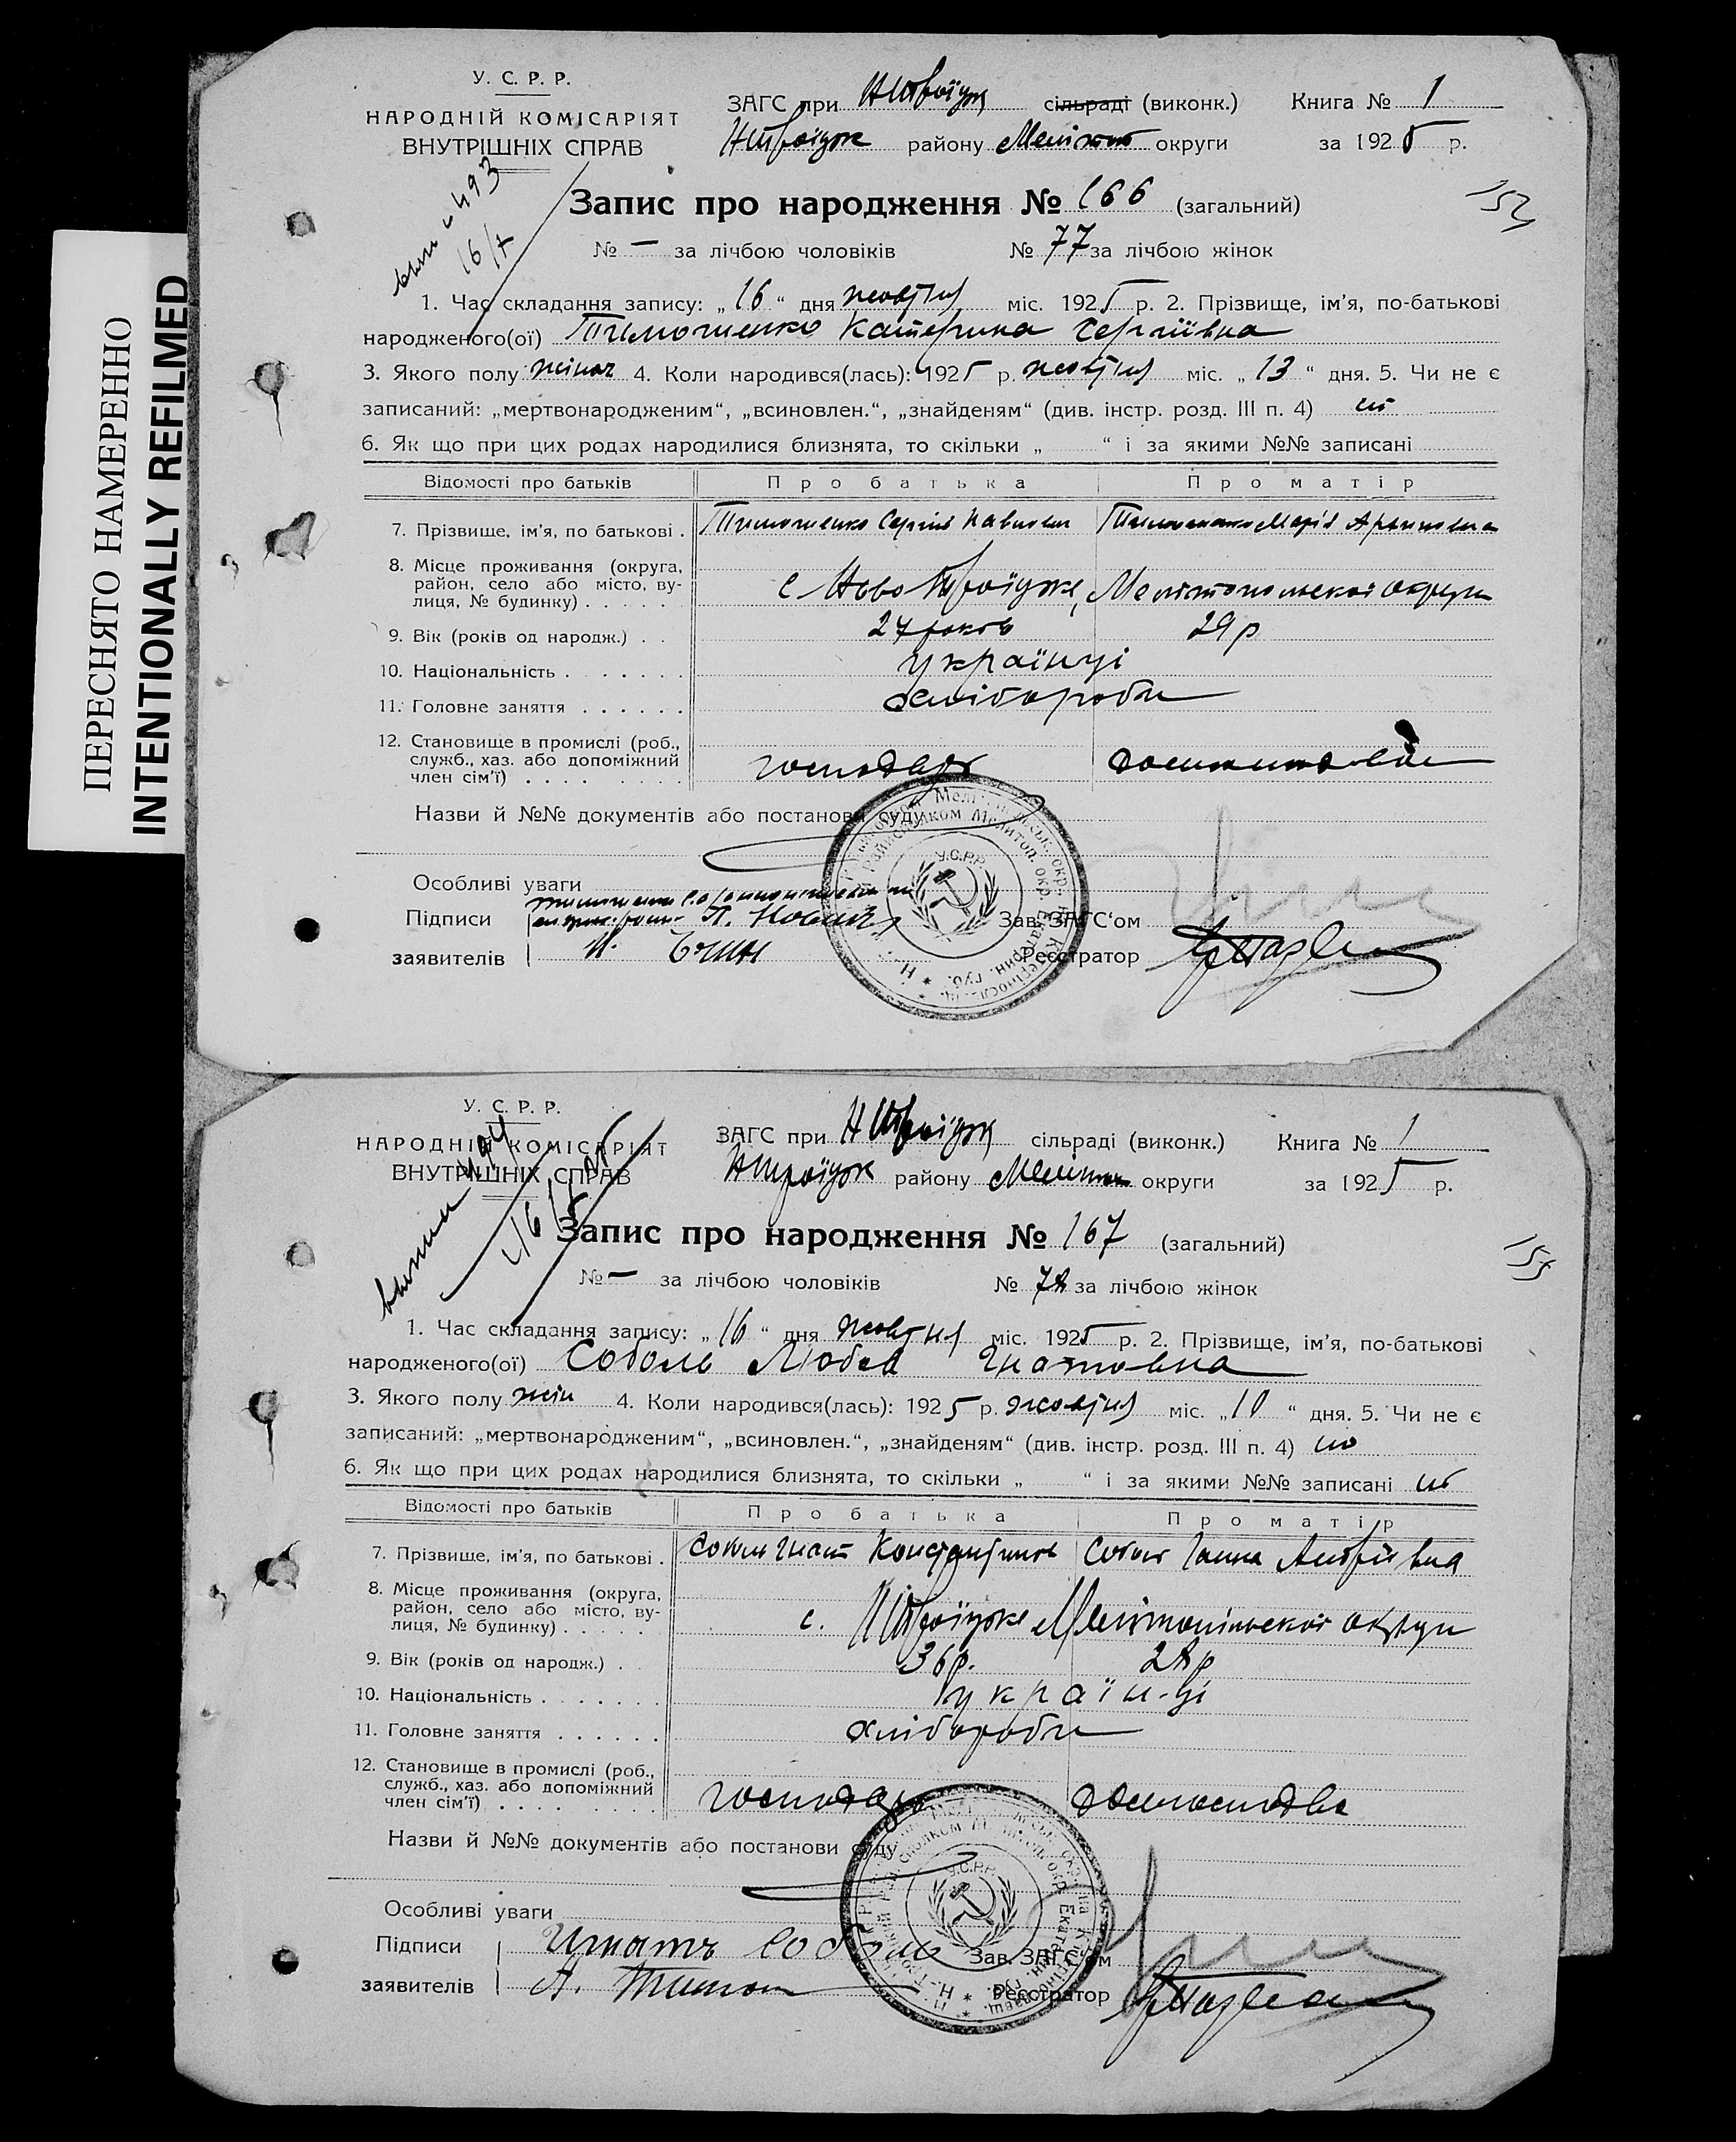 ПЕРЕСНЯТО НАМЕРЕННО
INTENTIONALLY REFILMED
У. С. Р. Р.
НАРОДНІЙ КОМІСАРІЯТ
ВНУТРІШНІХ СПРАВ
ЗАГС при НТроїцк сільраді (виконк.) Книга № 1
НТроїцк району Меліт округи за 1925 р.
493
16/X
152
Запис про народження № 166 (загальний)
№ — за лічбою чоловіків № 77 за лічбою жінок
1. Час складання запису: „16“ дня жовтня міс. 1925 р. 2. Прізвище, ім’я, по-батькові
народженого(ої) Тимошенко Катерина Сергіївна
3. Якого полу жіноч 4. Коли народився(лась): 1925 р. жовтня міс. „13“ дня. 5. Чи не є
записаний: „мертвонародженим“, „всиновлен.“, „знайденям“ (див. інстр. розд. III п. 4) ні
6. Як що при цих родах народилися близнята, то скільки „ “ і за якими №№ записані
Відомості про батьків Про батька Про матір
7. Прізвище, ім’я, по батькові . Тимошенко Сергій Павлович Тимошенко Марія
8. Місце проживання (округа, район, село або місто, вулиця, № будинку) . . . . . с Ново Троїцьке, Мелітопольскої округи
9. Вік (років од народж.) . . 27 років 29 р
10. Національність . . . . . . . українці
11. Головне заняття . . . . . . хлібороби
12. Становище в промислі (роб., служб., хаз. або допоміжний член сім’ї) . . . . господарь
Назви й №№ документів або постанови суду
Особливі уваги
Підписи
заявителів
Зав. ЗАГС‘ом
Реєстратор
У.С.Р.Р.
У. С. Р. Р.
НАРОДНІЙ КОМІСАРІЯТ
ВНУТРІШНІХ СПРАВ
ЗАГС при НТроїцк сільраді (виконк.) Книга № 1
НТроїцк району Меліт округи за 1925 р.
16/X 25
153
Запис про народження № 167 (загальний)
№ — за лічбою чоловіків № 78 за лічбою жінок
1. Час складання запису: „16“ дня жовтня міс. 1925 р. 2. Прізвище, ім’я, по-батькові
народженого(ої) Соболь Любов Гнатовна
3. Якого полу жін 4. Коли народився(лась): 1925 р. жовтня міс. „10“ дня. 5. Чи не є
записаний: „мертвонародженим“, „всиновлен.“, „знайденям“ (див. інстр. розд. III п. 4) ні
6. Як що при цих родах народилися близнята, то скільки „ “ і за якими №№ записані ні
Відомості про батьків Про батька Про матір
7. Прізвище, ім’я, по батькові . Соболь Гнат Константинов Соболь Ганна Андріївна
8. Місце проживання (округа, район, село або місто, вулиця, № будинку) . . . . . с. НТроїцьке Мелітопільскої округи
9. Вік (років од народж.) . . 36 р. 28 р
10. Національність . . . . . . . українці
11. Головне заняття . . . . . . хлібороби
12. Становище в промислі (роб., служб., хаз. або допоміжний член сім’ї) . . . . господарь домогосподка
Назви й №№ документів або постанови суду
Особливі уваги
Підписи Игнатъ Соболь
заявителів
Зав. ЗАГС‘ом
Реєстратор
У.С.Р.Р.